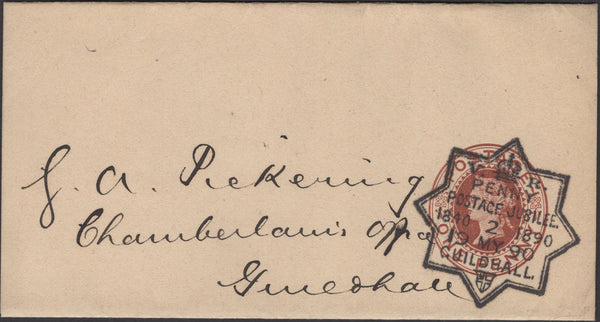 J. A. Pickering
Chamberlain's Offce
Guildhall
V R
PENNY
POSTAGE JUBILEE.
1840 2 1890
19 MY 90
GUILDHALL.